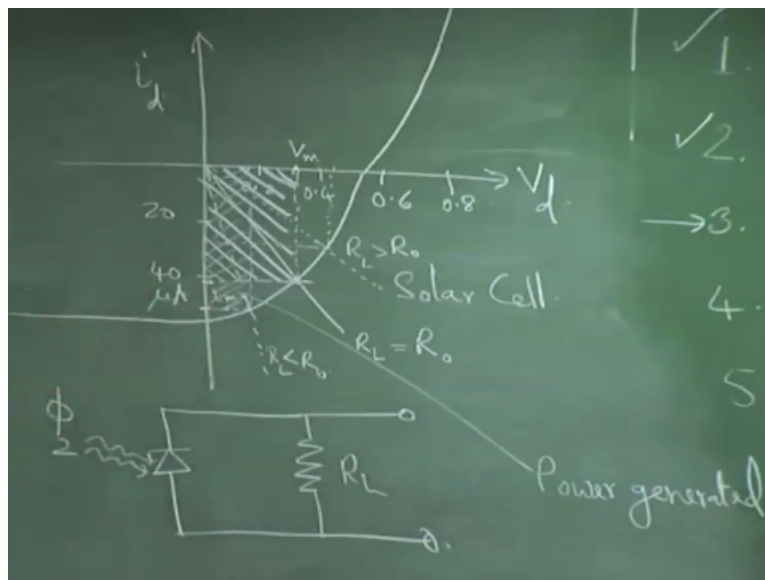 i_d
V_m
0.2
0.4
0.6
0.8
V_d.
20
40
μA
I_m
R_L>R_o
Solar Cell.
R_L=R_o
R_L<R_o
ϕ_2
R_L
Power generated
✓1.
✓2.
→3.
4.
5